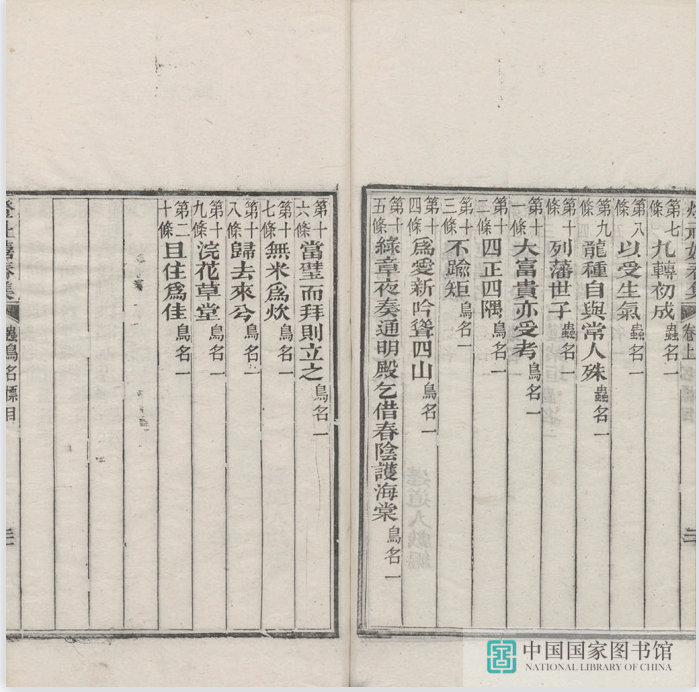 卷上
第七條 九轉初成 蟲名一
第八條 以受生氣 蟲名一
第九條 龍種自與常人殊 蟲名一
第十條 列藩世子 蟲名一
第十一條 大富貴亦受考 鳥名一
第十二條 四正四隅 鳥名一
第十三條 不踰矩 鳥名一
第十四條 爲愛新吟聳四山 鳥名一
第十五條 綠章夜奏通明殿乞借春陰護海棠 鳥名一
第十六條 當璧而拜則立之 鳥名一
第十七條 無米爲炊 鳥名一
第十八條 歸去來兮 鳥名一
第十九條 浣花草堂 鳥名一
第二十條 且住爲佳 鳥名一
蟲鳥名標目
中国国家图书馆
NATIONAL LIBRARY OF CHINA